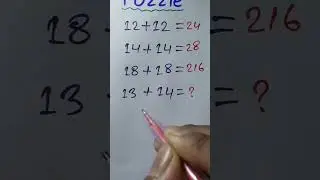 PUZZLE
12+12=24
14+14=28
18+18=216
13+14=?